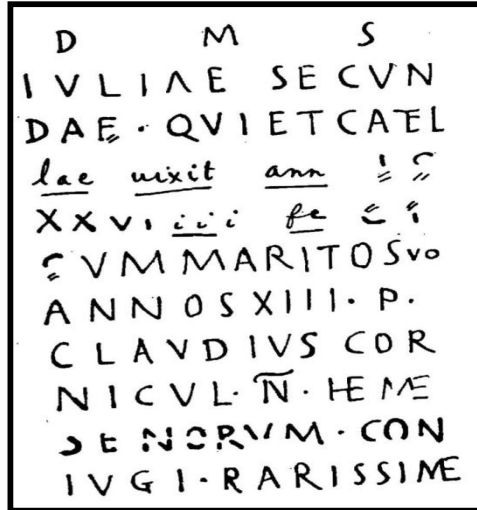 D M S
IVLIAE SECVN
DAE · QVIETCATEL
lae uixit ann
XXVI iiii fe
CVM MARITO SVO
ANNOS XIIII · P ·
CLAVDIVS COR
NICVL · N̅ · HEME
SENORVM · CON
IVGI · RARISSIME